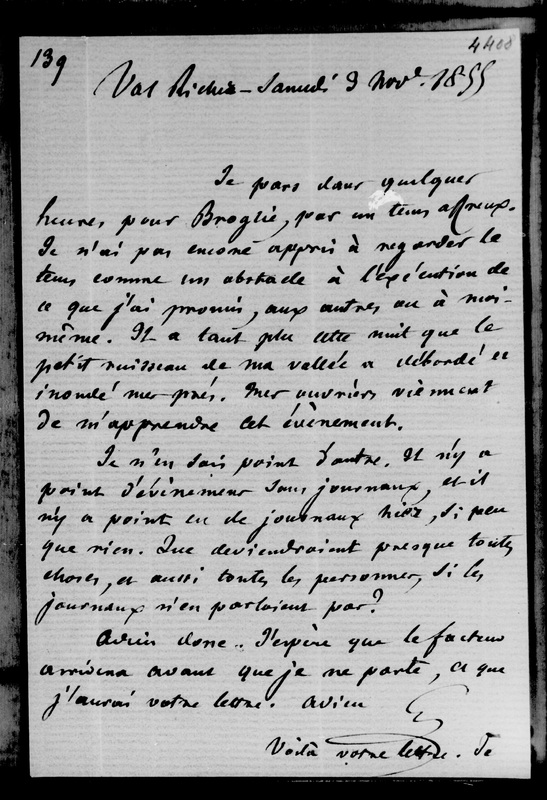 139
4408
Val Richer – Samedi 3 Novb. 1855
Je pars dans quelques
heures pour Broglie, par un tems affreux.
Je n'ai pas encore appris à regarder le
tems comme un obstacle à l'exécution de
ce que j'ai promis, aux autres ou à moi-
même. Il a tant plu cette nuit que le
petit ruisseau de ma vallée a débordé et
inondé mes prés. Mes ouvriers viennent
de m'apprendre cet évènement.
Je n'en sais point d'autre. Il n'y a
point d'évènemens sans journaux, et il
n'y a point eu de journaux hier, si peu
que rien. Que deviendraient presque toutes
choses, et aussi toutes les personnes, si les
journaux n'en parloient pas?
Adieu donc. J'espère que le facteur
arrivera avant que je ne parte, et que
j'aurai votre lettre. Adieu
G
Voilà votre lettre. Je